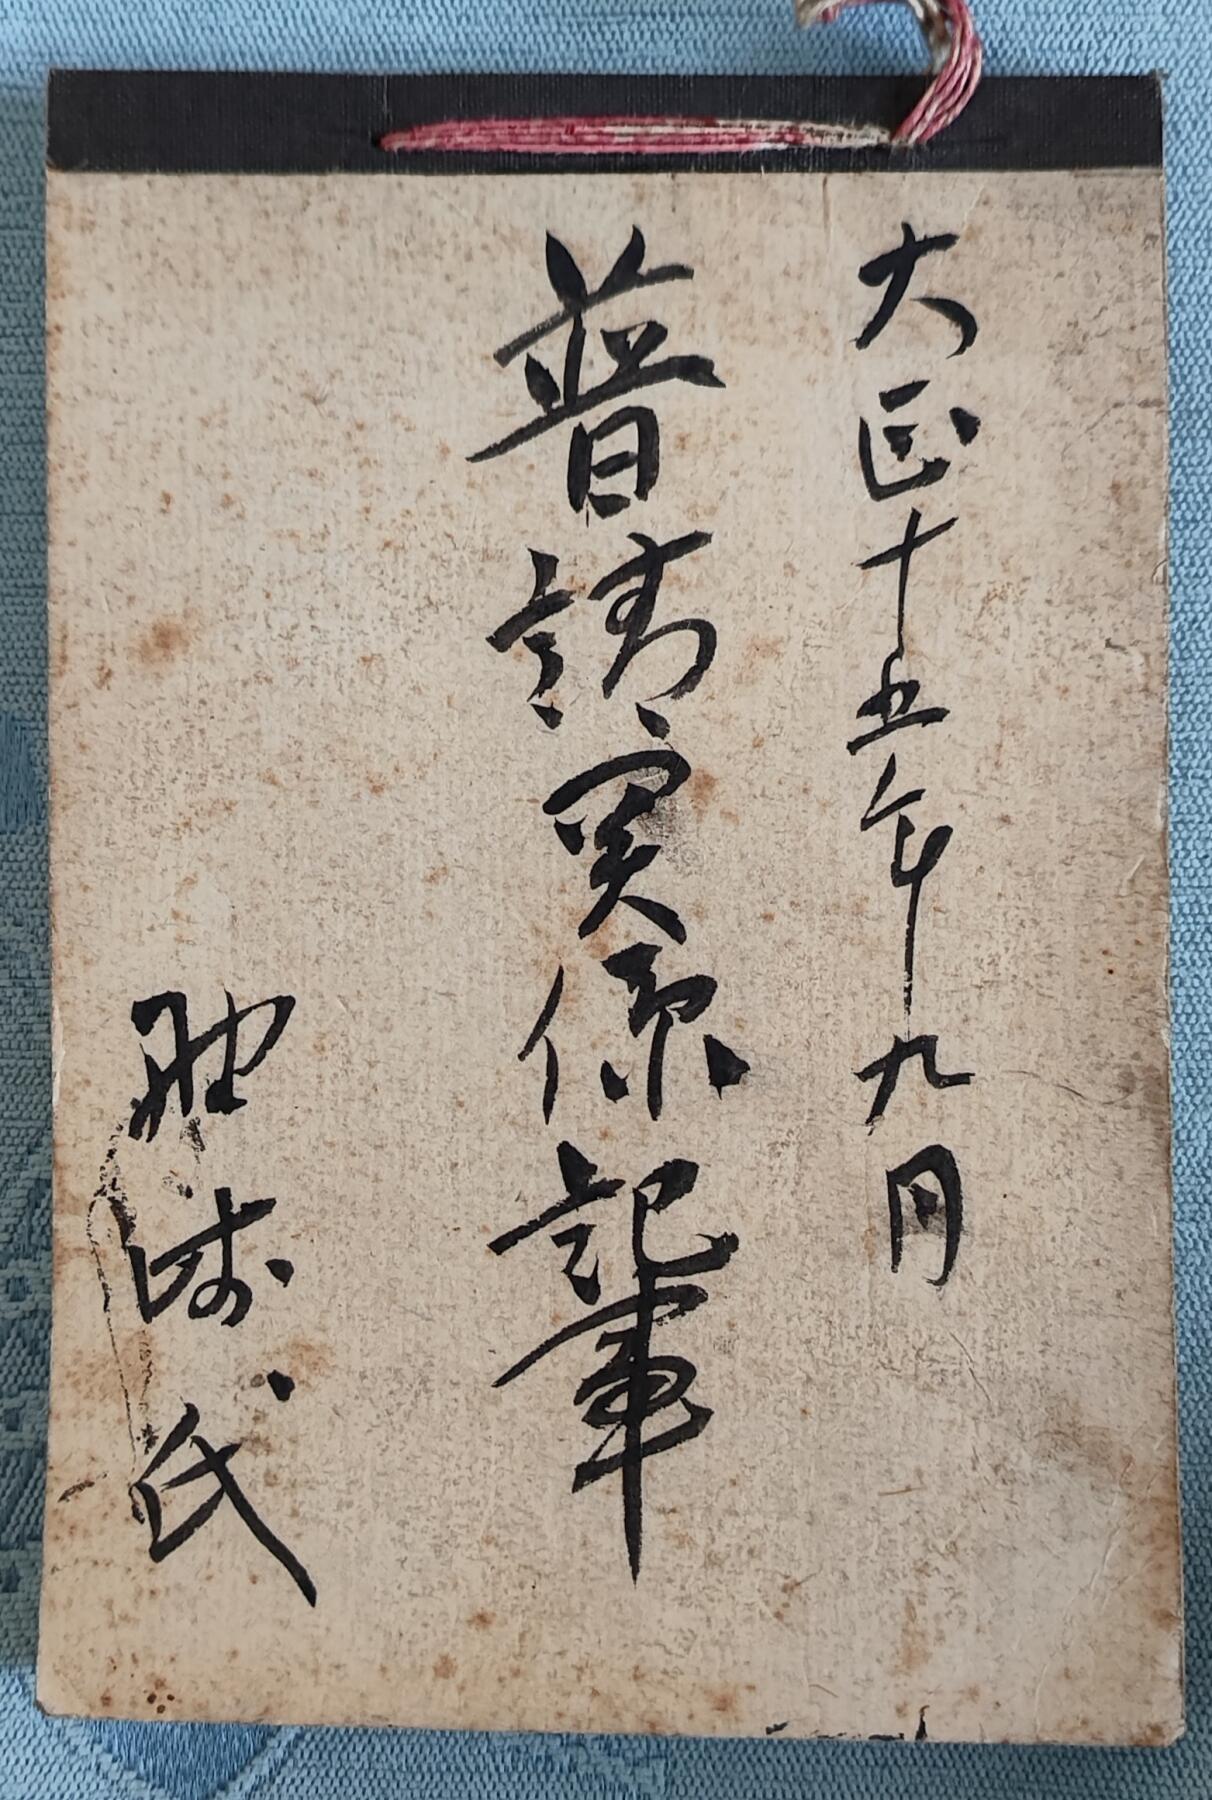 大正十五年九月
普請関係記事